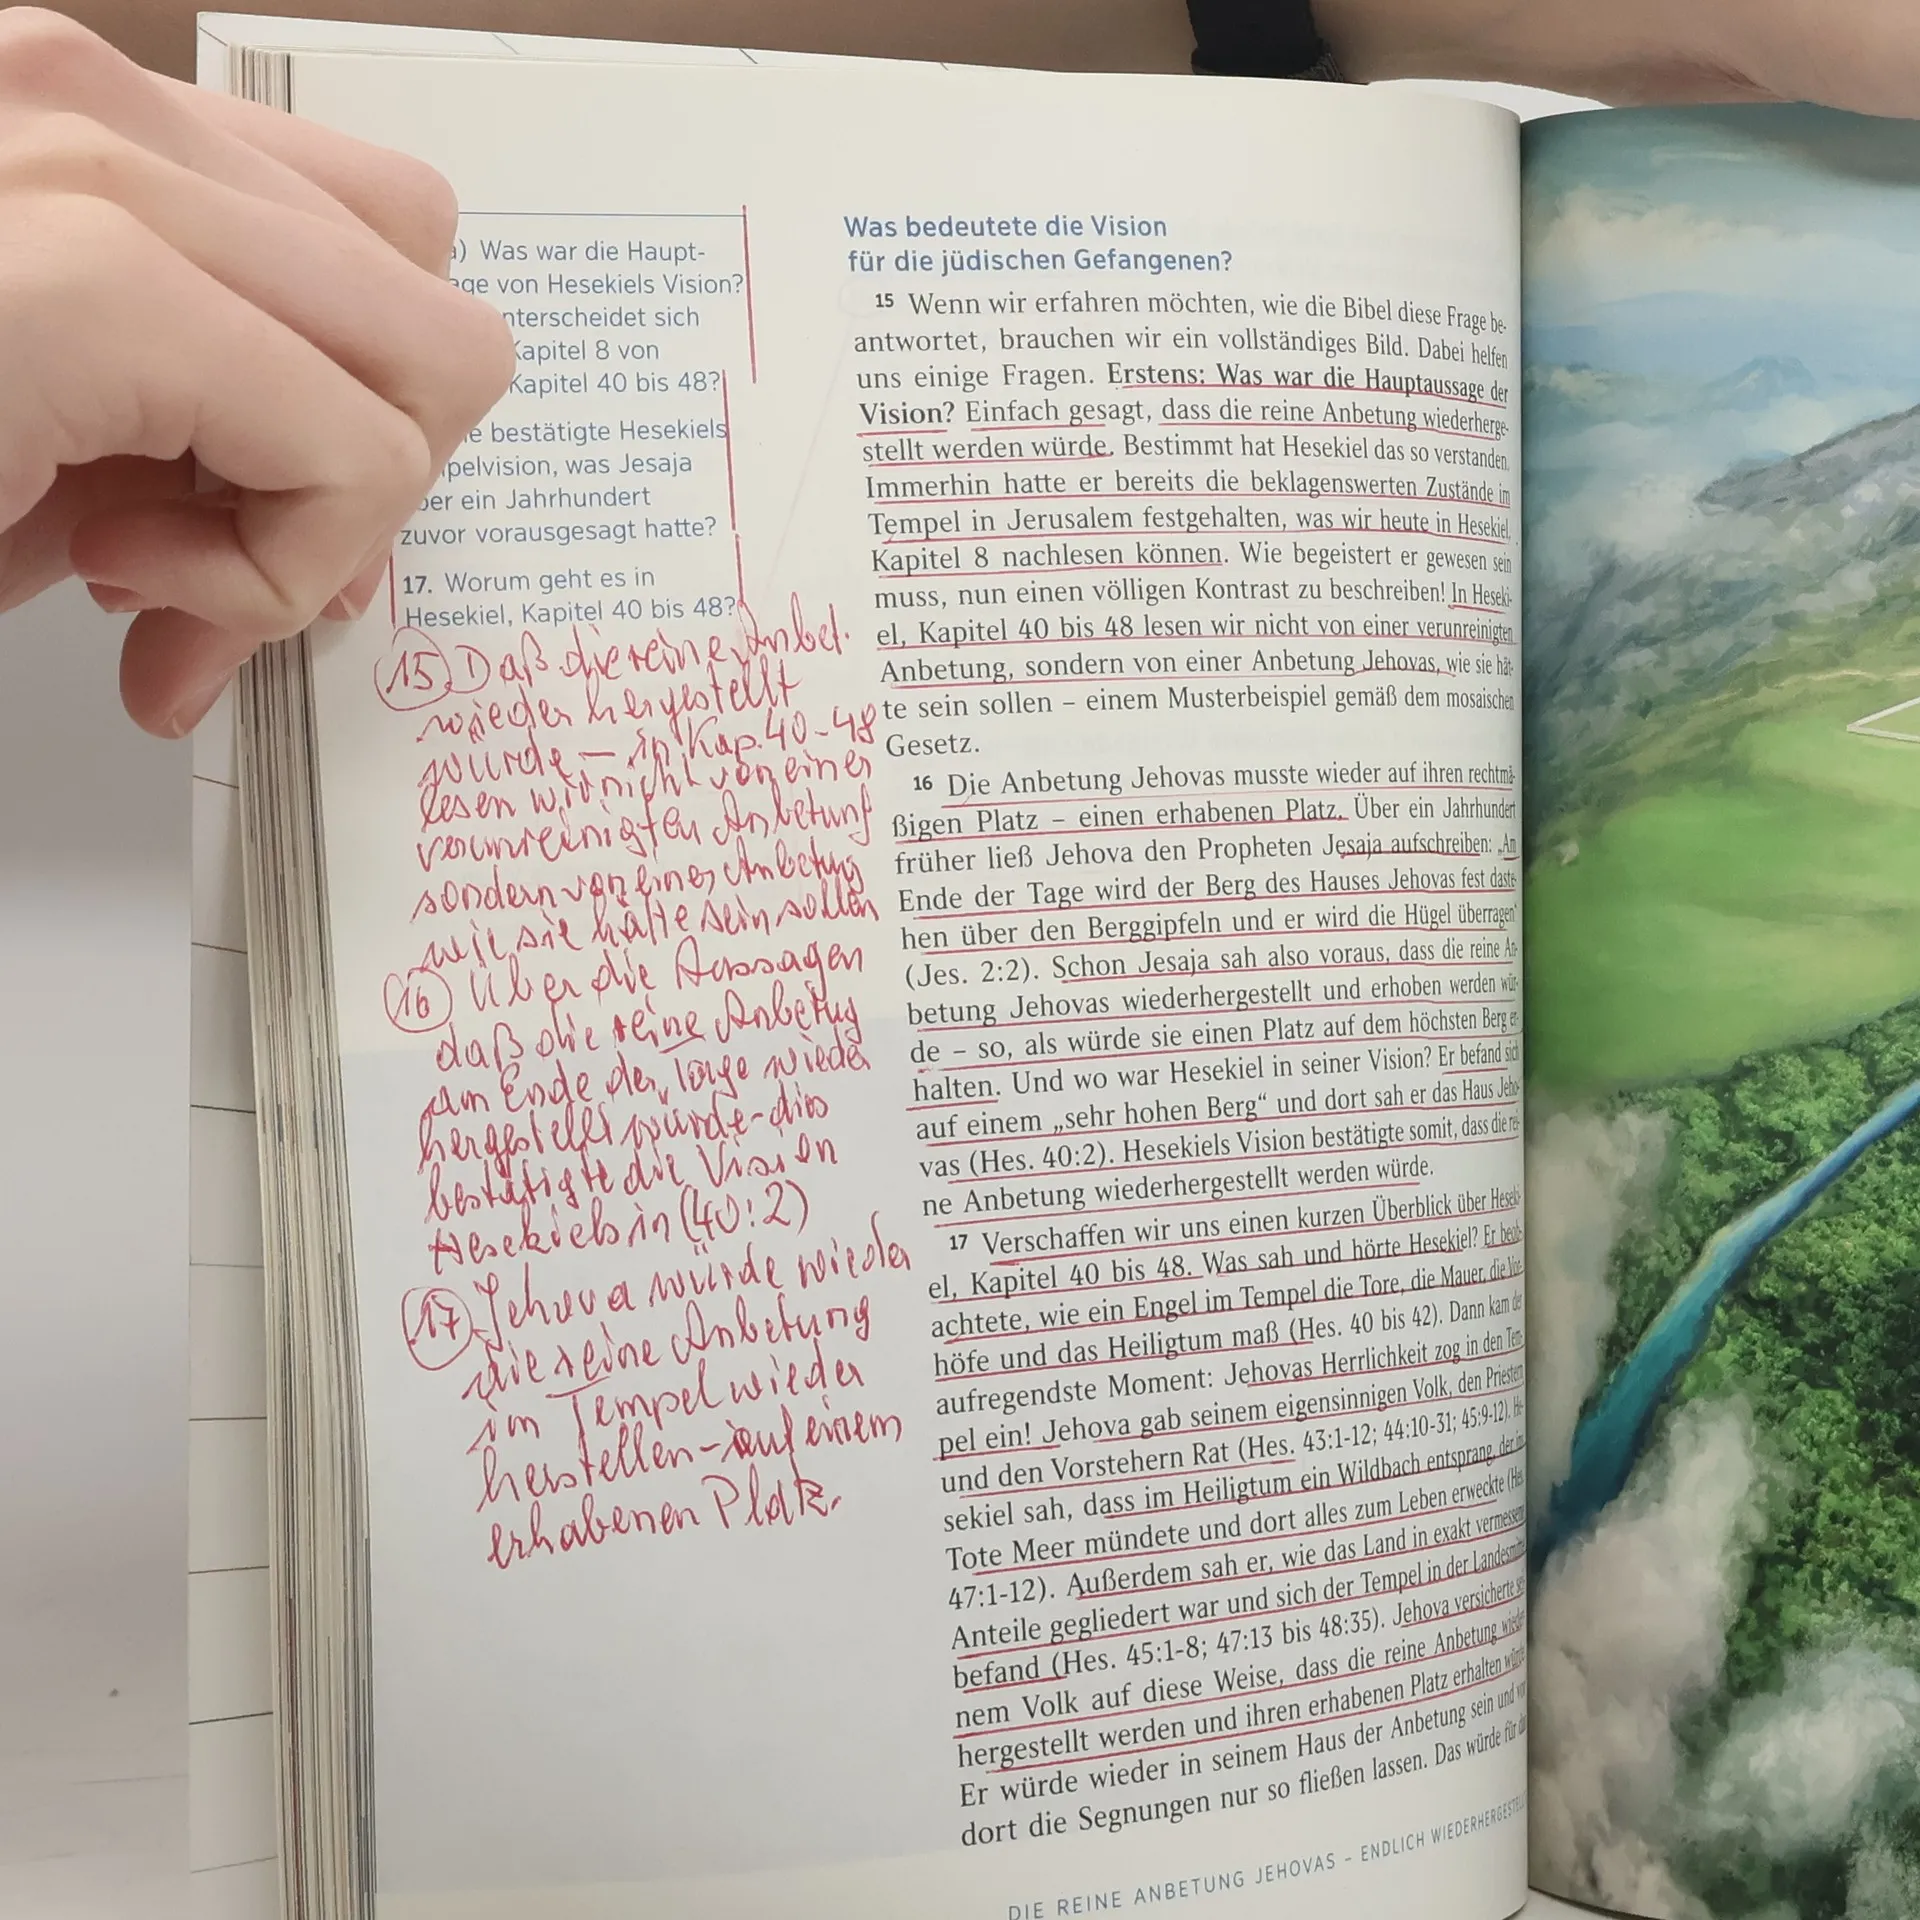 a) Was war die Haupt-
age von Hesekiels Vision?
nterscheidet sich
Kapitel 8 von
Kapitel 40 bis 48?
bestätigte Hesekiels
pelvision, was Jesaja
ber ein Jahrhundert
zuvor vorausgesagt hatte?
17. Worum geht es in
Hesekiel, Kapitel 40 bis 48?
15 Daß die reine Anbet.
wieder hergestellt
wurde – in Kap. 40-48
lesen wir nicht von einer
verunreinigten Anbetung
sondern von einer Anbetung
wie sie hätte sein sollen
16 Über die Aussagen
daß die reine Anbetung
am Ende der Tage wieder
hergestellt wurde – dies
bestätigte die Vision
Hesekiels in (40:2)
17 Jehova würde wieder
die reine Anbetung
im Tempel wieder
herstellen – auf einem
erhabenen Platz.
Was bedeutete die Vision
für die jüdischen Gefangenen?
15 Wenn wir erfahren möchten, wie die Bibel diese Frage be-
antwortet, brauchen wir ein vollständiges Bild. Dabei helfen
uns einige Fragen. Erstens: Was war die Hauptaussage der
Vision? Einfach gesagt, dass die reine Anbetung wiederherge-
stellt werden würde. Bestimmt hat Hesekiel das so verstanden.
Immerhin hatte er bereits die beklagenswerten Zustände im
Tempel in Jerusalem festgehalten, was wir heute in Hesekiel,
Kapitel 8 nachlesen können. Wie begeistert er gewesen sein
muss, nun einen völligen Kontrast zu beschreiben! In Heseki-
el, Kapitel 40 bis 48 lesen wir nicht von einer verunreinigten
Anbetung, sondern von einer Anbetung Jehovas, wie sie hät-
te sein sollen – einem Musterbeispiel gemäß dem mosaischen
Gesetz.
16 Die Anbetung Jehovas musste wieder auf ihren rechtmä-
ßigen Platz – einen erhabenen Platz. Über ein Jahrhundert
früher ließ Jehova den Propheten Jesaja aufschreiben: „Am
Ende der Tage wird der Berg des Hauses Jehovas fest daste-
hen über den Berggipfeln und er wird die Hügel überragen“
(Jes. 2:2). Schon Jesaja sah also voraus, dass die reine An-
betung Jehovas wiederhergestellt und erhoben werden wür-
de – so, als würde sie einen Platz auf dem höchsten Berg er-
halten. Und wo war Hesekiel in seiner Vision? Er befand sich
auf einem „sehr hohen Berg“ und dort sah er das Haus Jeho-
vas (Hes. 40:2). Hesekiels Vision bestätigte somit, dass die rei-
ne Anbetung wiederhergestellt werden würde.
17 Verschaffen wir uns einen kurzen Überblick über Heseki-
el, Kapitel 40 bis 48. Was sah und hörte Hesekiel? Er beob-
achtete, wie ein Engel im Tempel die Tore, die Mauer, die Vor-
höfe und das Heiligtum maß (Hes. 40 bis 42). Dann kam der
aufregendste Moment: Jehovas Herrlichkeit zog in den Tem-
pel ein! Jehova gab seinem eigensinnigen Volk, den Priestern
und den Vorstehern Rat (Hes. 43:1-12; 44:10-31; 45:9-12). He-
sekiel sah, dass im Heiligtum ein Wildbach entsprang, der ins
Tote Meer mündete und dort alles zum Leben erweckte (Hes.
47:1-12). Außerdem sah er, wie das Land in exakt vermessene
Anteile gegliedert war und sich der Tempel in der Landesmitte
befand (Hes. 45:1-8; 47:13 bis 48:35). Jehova versicherte sei-
nem Volk auf diese Weise, dass die reine Anbetung wieder-
hergestellt werden und ihren erhabenen Platz erhalten würde.
Er würde wieder in seinem Haus der Anbetung sein und von
dort die Segnungen nur so fließen lassen. Das würde für
DIE REINE ANBETUNG JEHOVAS – ENDLICH WIEDERHERGESTELL